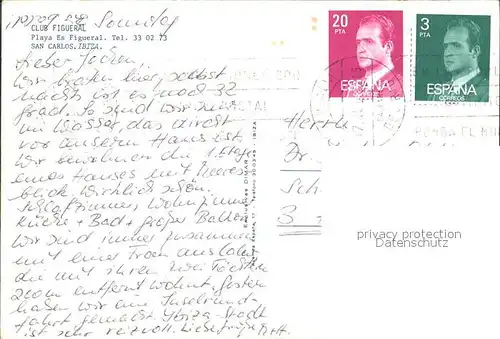 CLUB FIGUERAL
Playa Es Figueral. Tel. 33 02 73
SAN CARLOS. IBIZA.
Sonntag
Lieber Jochen,
Wir braten hier, selbst
nachts ist es noch 32
Grad. So sind wir
im Wasser, das direkt
vor unserem Haus ist
Wir bewohnen die 1. Etage
eines Hauses mit Meeres
blick. Wirklich schön.
Schlafzimmer, Wohnzimmer
Küche + Bad + großer Balkon
Wir sind immer zusammen
mit einer Frau aus
die mit ihren zwei Töchtern
200m entfernt wohnt. Gestern
haben wir eine Inselrund-
fahrt gemacht. Ibiza-Stadt
ist sehr reizvoll. Liebe Grüße
20
PTA
ESPAÑA
CORREOS
3
PTA
ESPAÑA
CORREOS
Herrn
Dr.
Sch
3
IBIZA
privacy protection
Datenschutz